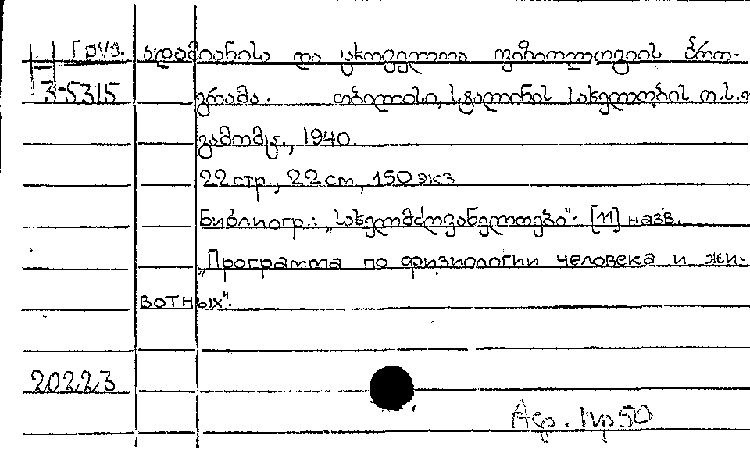 Груз. ადამიანისა და ცხოველთა ფიზიოლოგიის პრო-
3-5315 გრამა. თბილისი, სტალინის სახელობის თ.ს.უ
გამომც., 1940.
22 стр., 22 см, 150 экз
Библиогр.: „სახელმძღვანელოები“. [11] назв.
„Программа по физиологии человека и жи-
вотных“.
20223